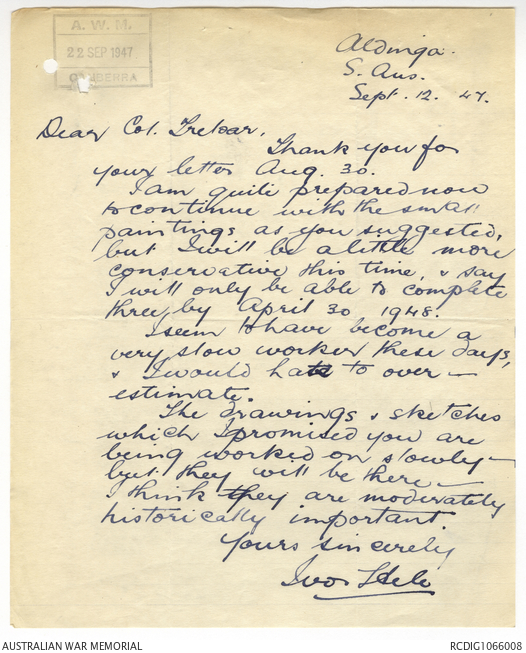 A. W. M.
22 SEP 1947
CANBERRA
Aldinga.
S. Aus.
Sept. 12. 47.
Dear Col. Treloar,
Thank you for
your letter Aug. 30.
I am quite prepared now
to continue with the small
paintings as you suggested,
but I will be a little more
conservative this time, & say
I will only be able to complete
three, by April 30 1948.
I seem to have become a
very slow worker these days,
& I would hate to over —
estimate.
The drawings & sketches
which I promised you are
being worked on slowly —
but they will be there —
I think they are moderately
historically important.
Yours sincerely
Ivor Hele
AUSTRALIAN WAR MEMORIAL
RCDIG1066008